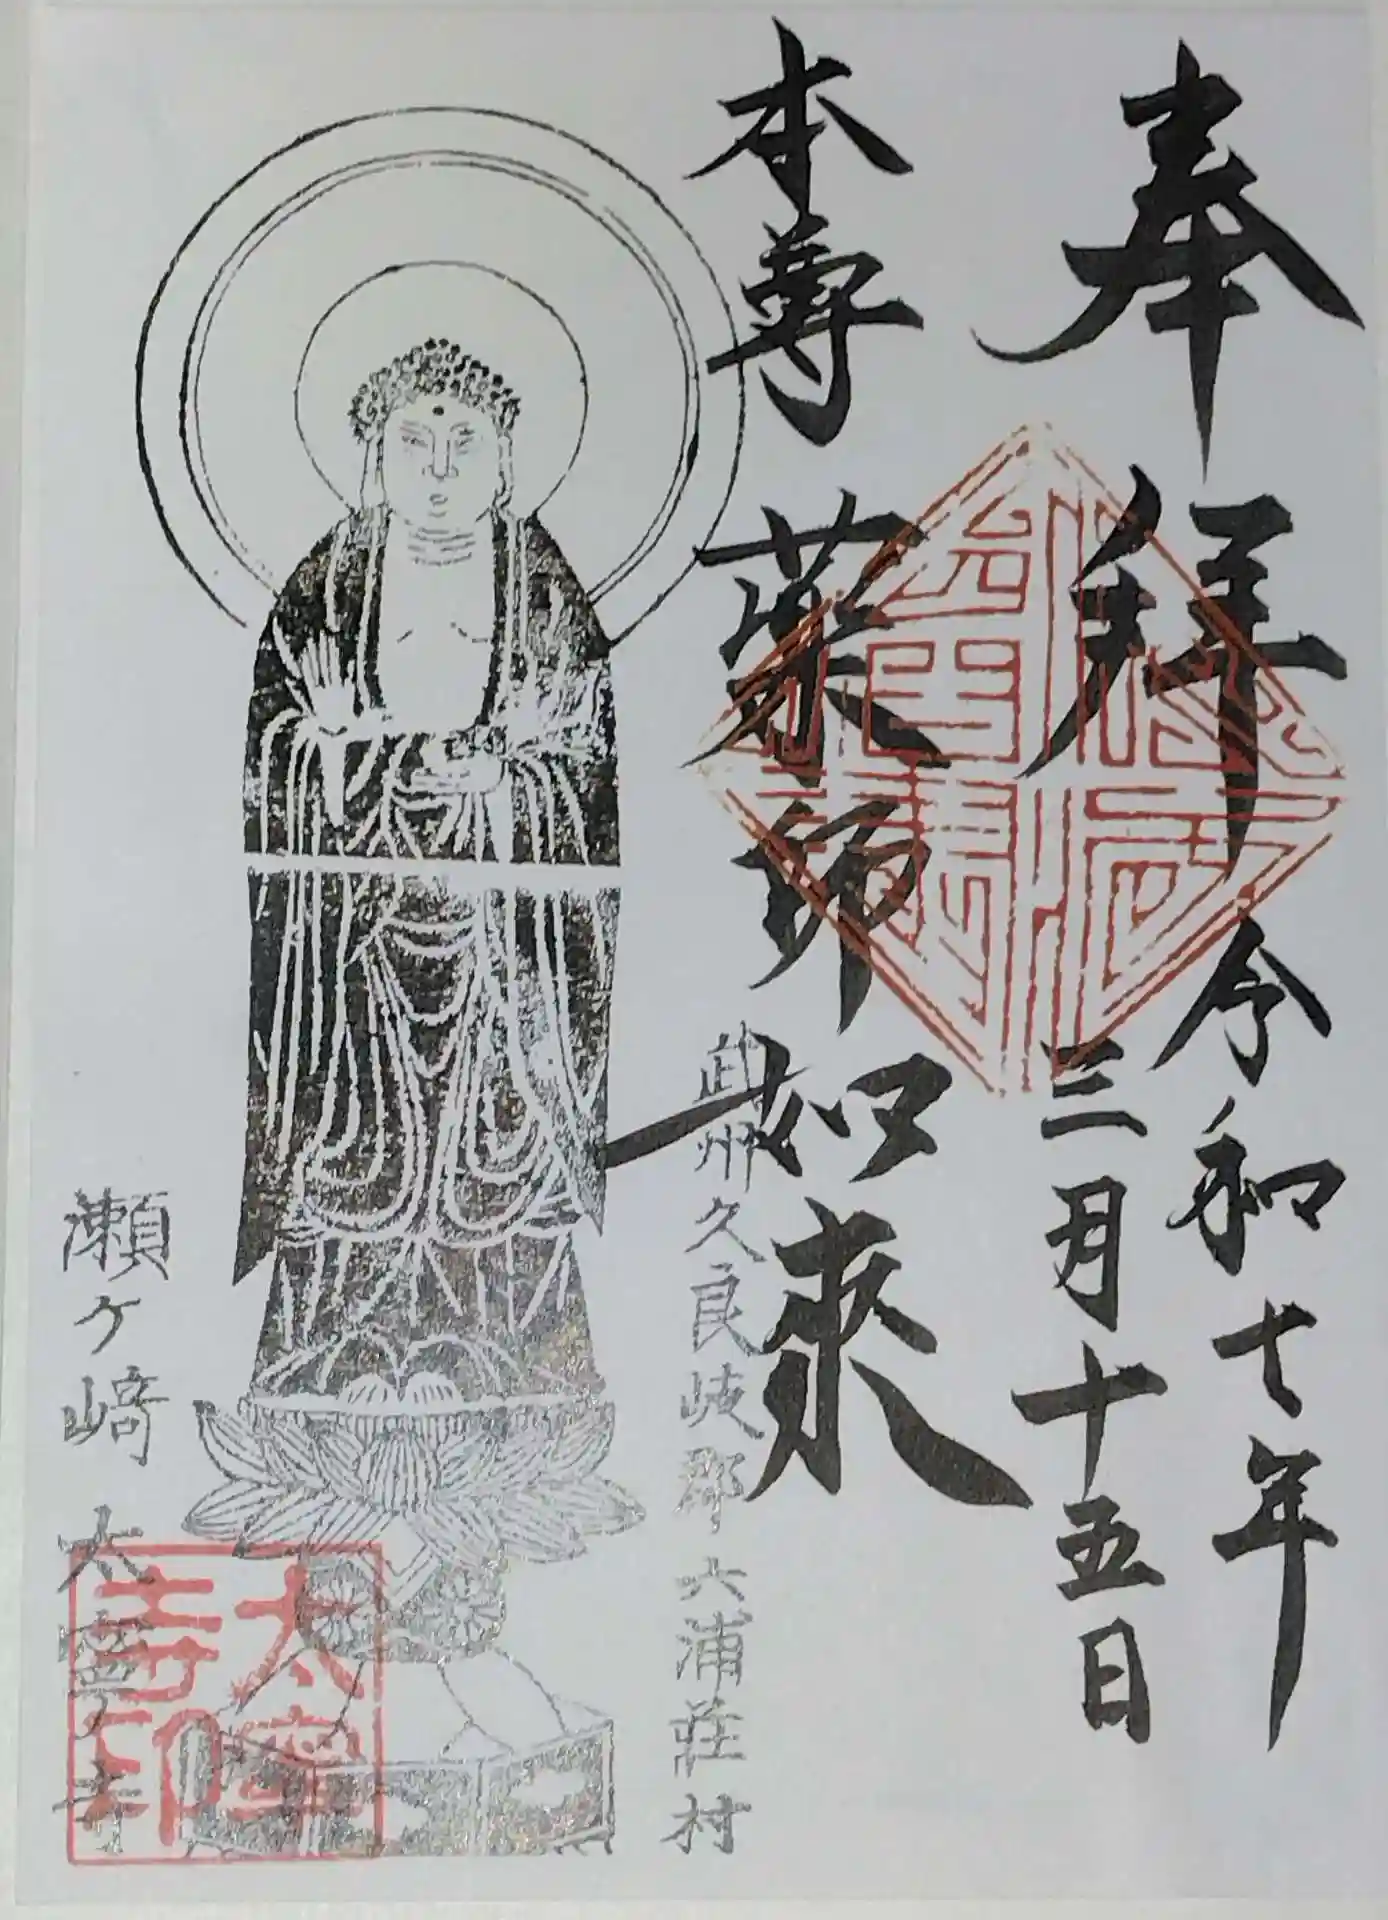 奉拝
令和七年
三月十五日
本尊 薬師如来
武州久良岐郡 六浦荘村
瀬ヶ崎 太寧寺
太寧
寺印